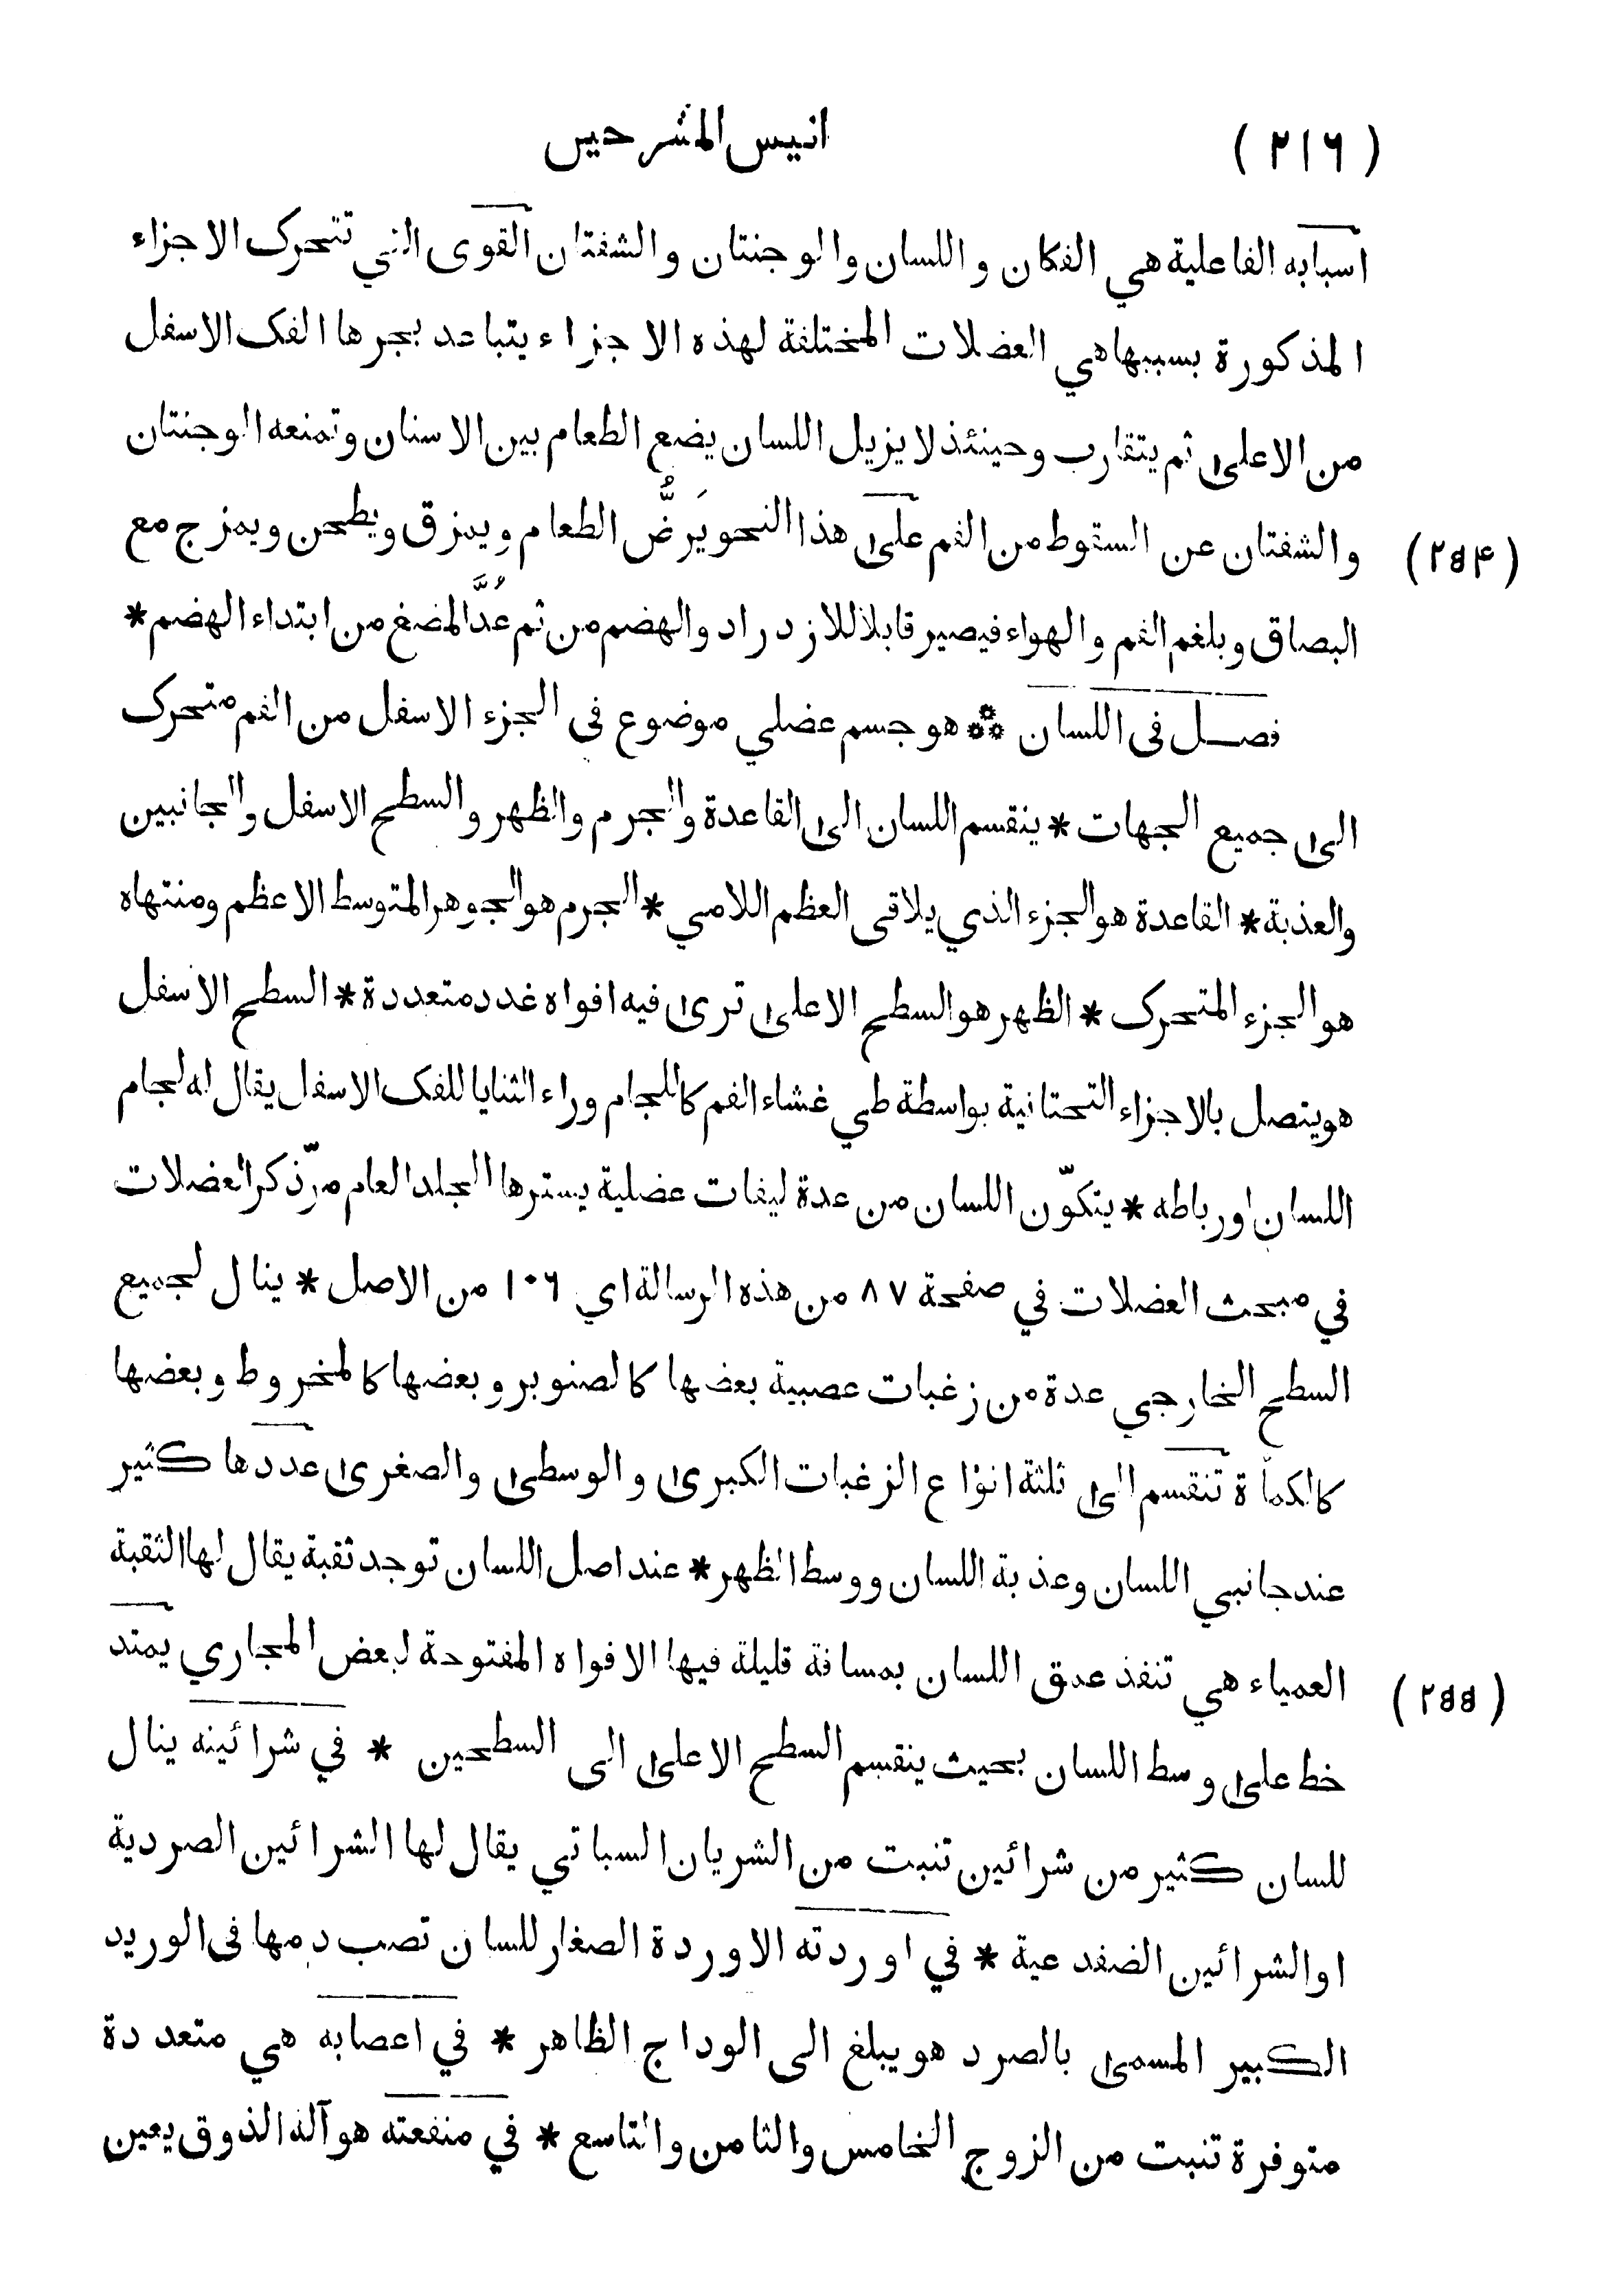 (٢١٦) انيس المشرحين
اسبابه الفاعلية هي الفكان و اللسان والوجنتان و الشفتان القوى التي تتحرك الاجزاء
المذكورة بسببها هي العضلات المختلفة لهذه الاجزاء يتباعد بجرها الفك الاسفل
من الاعلى ثم يتقارب وحينئذ لا يزيل اللسان يضع الطعام بين الاسنان وتمنعه الوجنتان
(٢٥۴) والشفتان عن السقوط من الفم على هذا النحو يَرُضُّ الطعام ويمزق ويطحن ويمزج مع
البصاق وبلغم الفم والهواء فيصير قابلا للازدراد والهضم من ثم عُدَّ المضغ من ابتداء الهضم *
فصل فى اللسان ⁂ هو جسم عضلي موضوع فى الجزء الاسفل من الفم متحرك
الى جميع الجهات * ينقسم اللسان الى القاعدة والجرم والظهر والسطح الاسفل والجانبين
والعذبة * القاعدة هو الجزء الذي يلاقى العظم اللامي * الجرم هو الجوهر المتوسط الاعظم ومنتهاه
هو الجزء المتحرك * الظهر هو السطح الاعلى ترى فيه افواه غدد متعددة * السطح الاسفل
هو يتصل بالاجزاء التحتانية بواسطة طي غشاء الفم كاللجام وراء الثنايا للفك الاسفل يقال له لجام
اللسان اورباطه * يتكوّن اللسان من عدة ليفات عضلية يسترها الجلد العام مرّ ذكر العضلات
في مبحث العضلات في صفحة ٨٧ من هذه الرسالة اي ١٠٦ من الاصل * ينال لجميع
السطح الخارجي عدة من زغبات عصبية بعضها كالصنوبر وبعضها كالمخروط وبعضها
كالكمأة تنقسم الى ثلثة انواع الزغبات الكبرى والوسطى والصغرى عددها كثير
عند جانبي اللسان وعذبة اللسان ووسط الظهر * عند اصل اللسان توجد ثقبة يقال لها الثقبة
(٢٥٥) العمياء هي تنفذ عمق اللسان بمسافة قليلة فيها الافواه المفتوحة لبعض المجاري يمتد
خط على وسط اللسان بحيث ينقسم السطح الاعلى الى السطحين * في شرائينه ينال
للسان كثير من شرائين تنبت من الشريان السباتي يقال لها الشرائين الصردية
او الشرائين الضفدعية * في اوردته الاوردة الصغار للسان تصب دمها فى الوريد
الكبير المسمى بالصرد هو يبلغ الى الوداج الظاهر * في اعصابه هي متعددة
متوفرة تنبت من الزوج الخامس والثامن والتاسع * في منفعته هو آلة الذوق يعين